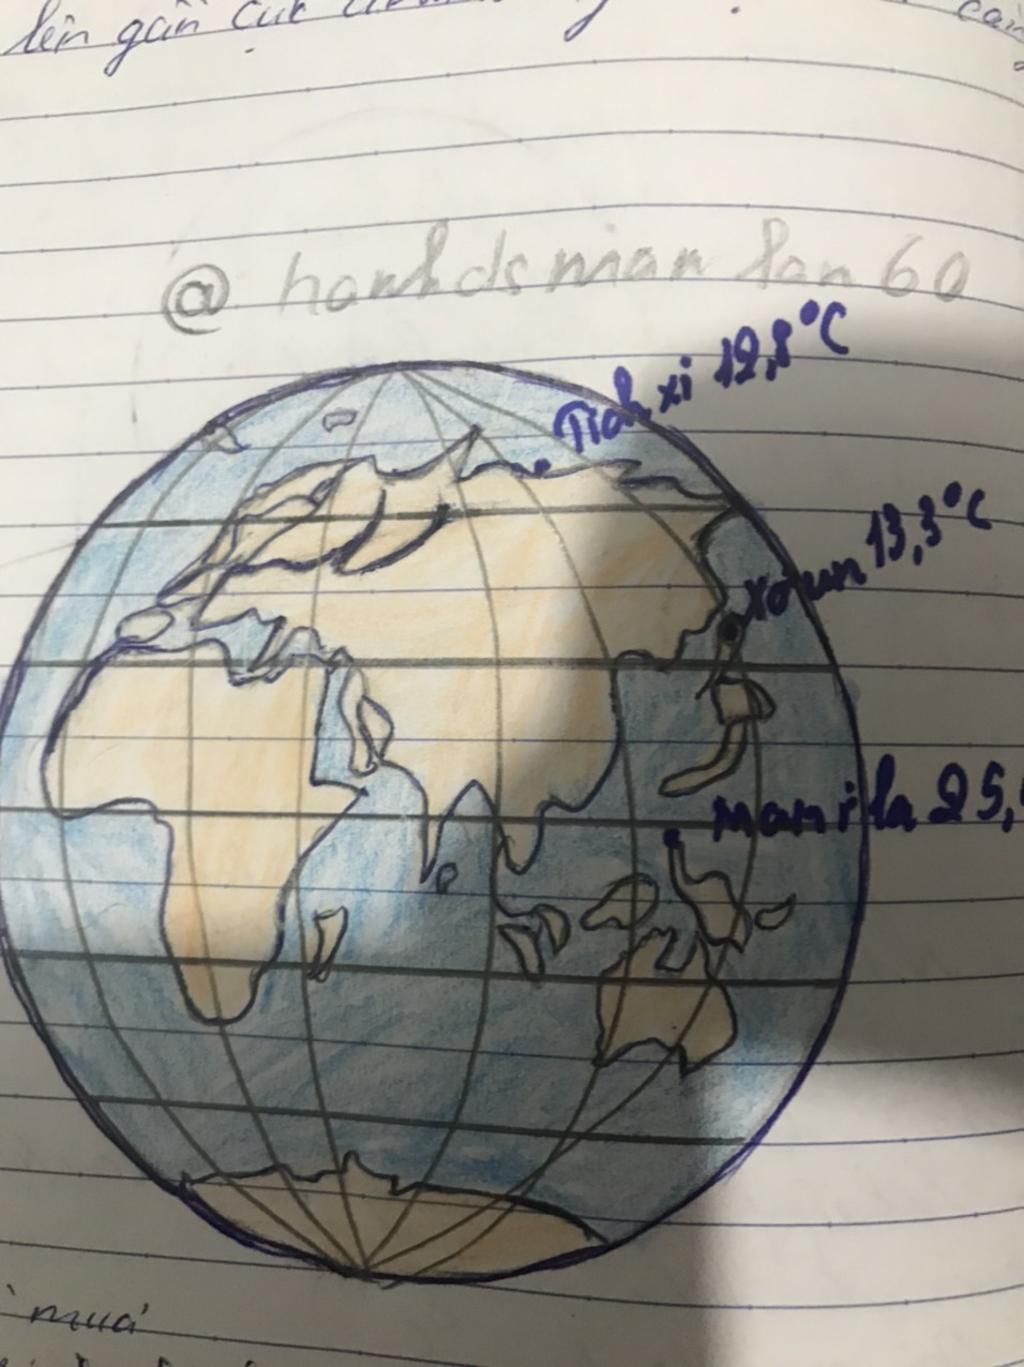 lên gần cực
@ hanhdsman lan 60
Tich xi 12,8°C
xơ un 13,3°C
manila 25,
mua